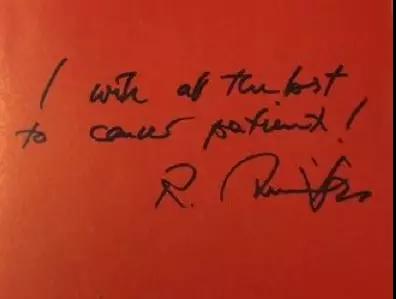 I wish all the best
to cancer patient!
R.